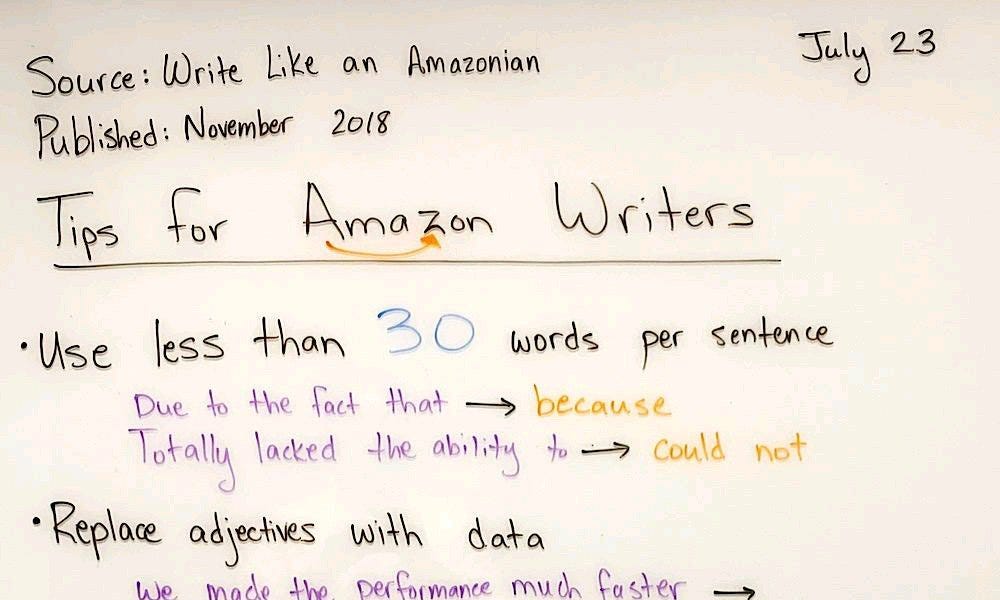 July 23
Source: Write Like an Amazonian
Published: November 2018
Tips for Amazon Writers
• Use less than 30 words per sentence
Due to the fact that → because
Totally lacked the ability to → could not
• Replace adjectives with data
We made the performance much faster →